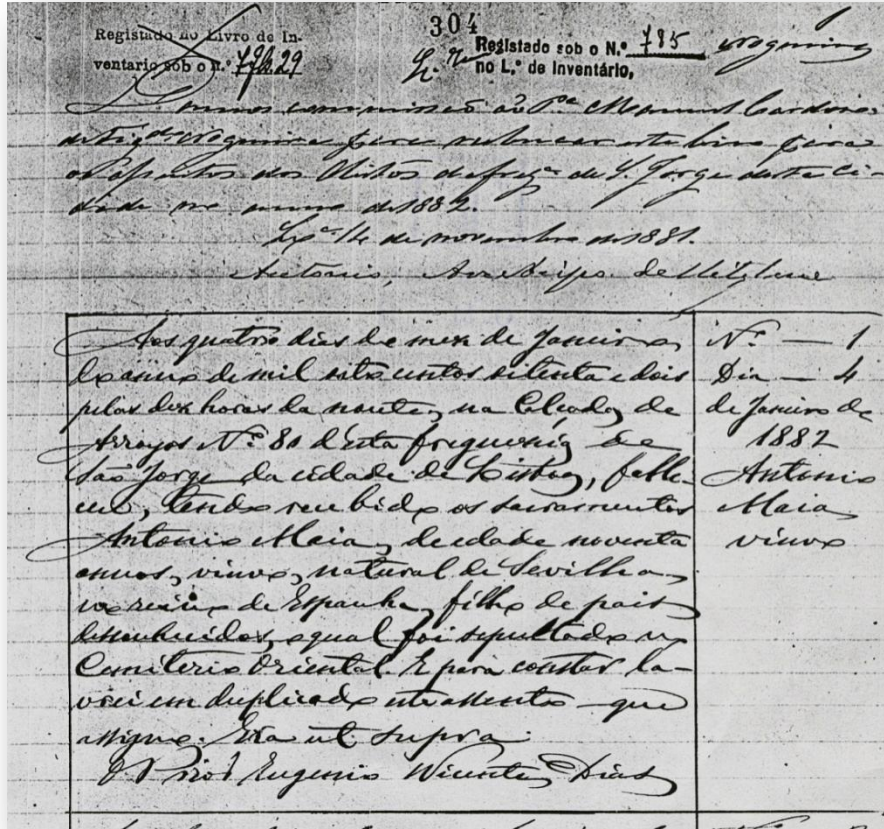 304
Registado no Livro de In-
ventario sob o n.º
Registado sob o N.º 785
no L.º de Inventário,
Damos commissão ao P.e Manuel Cardoso
Nogueira para rubricar este livro para
os assentos dos Obitos da freg.a de S. Jorge desta Ci-
dade no anno de 1882.
Lx.a 14 de novembro de 1881.
Antonio, Arcebispo de Mitylene
Aos quatro dias do mez de Janeiro
do anno de mil oito centos oitenta e dois
pelas dez horas da noute, na Calçada de
Arroyos N.º 80 d'esta freguesia de
São Jorge da cidade de Lisboa, falle-
ceu, tendo recebido os sacramentos
Antonio Maia, de edade noventa
annos, viuvo, natural de Sevilha,
reino de Espanha, filho de pais
desconhecidos, o qual foi sepultado no
Cemiterio Oriental. E para constar la-
vrei em duplicado este assento que
assigno. Era ut supra.
O Prior Eugenio Vicente Dias
N.º — 1
Dia — 4
de Janeiro de
1882
Antonio
Maia
viuvo